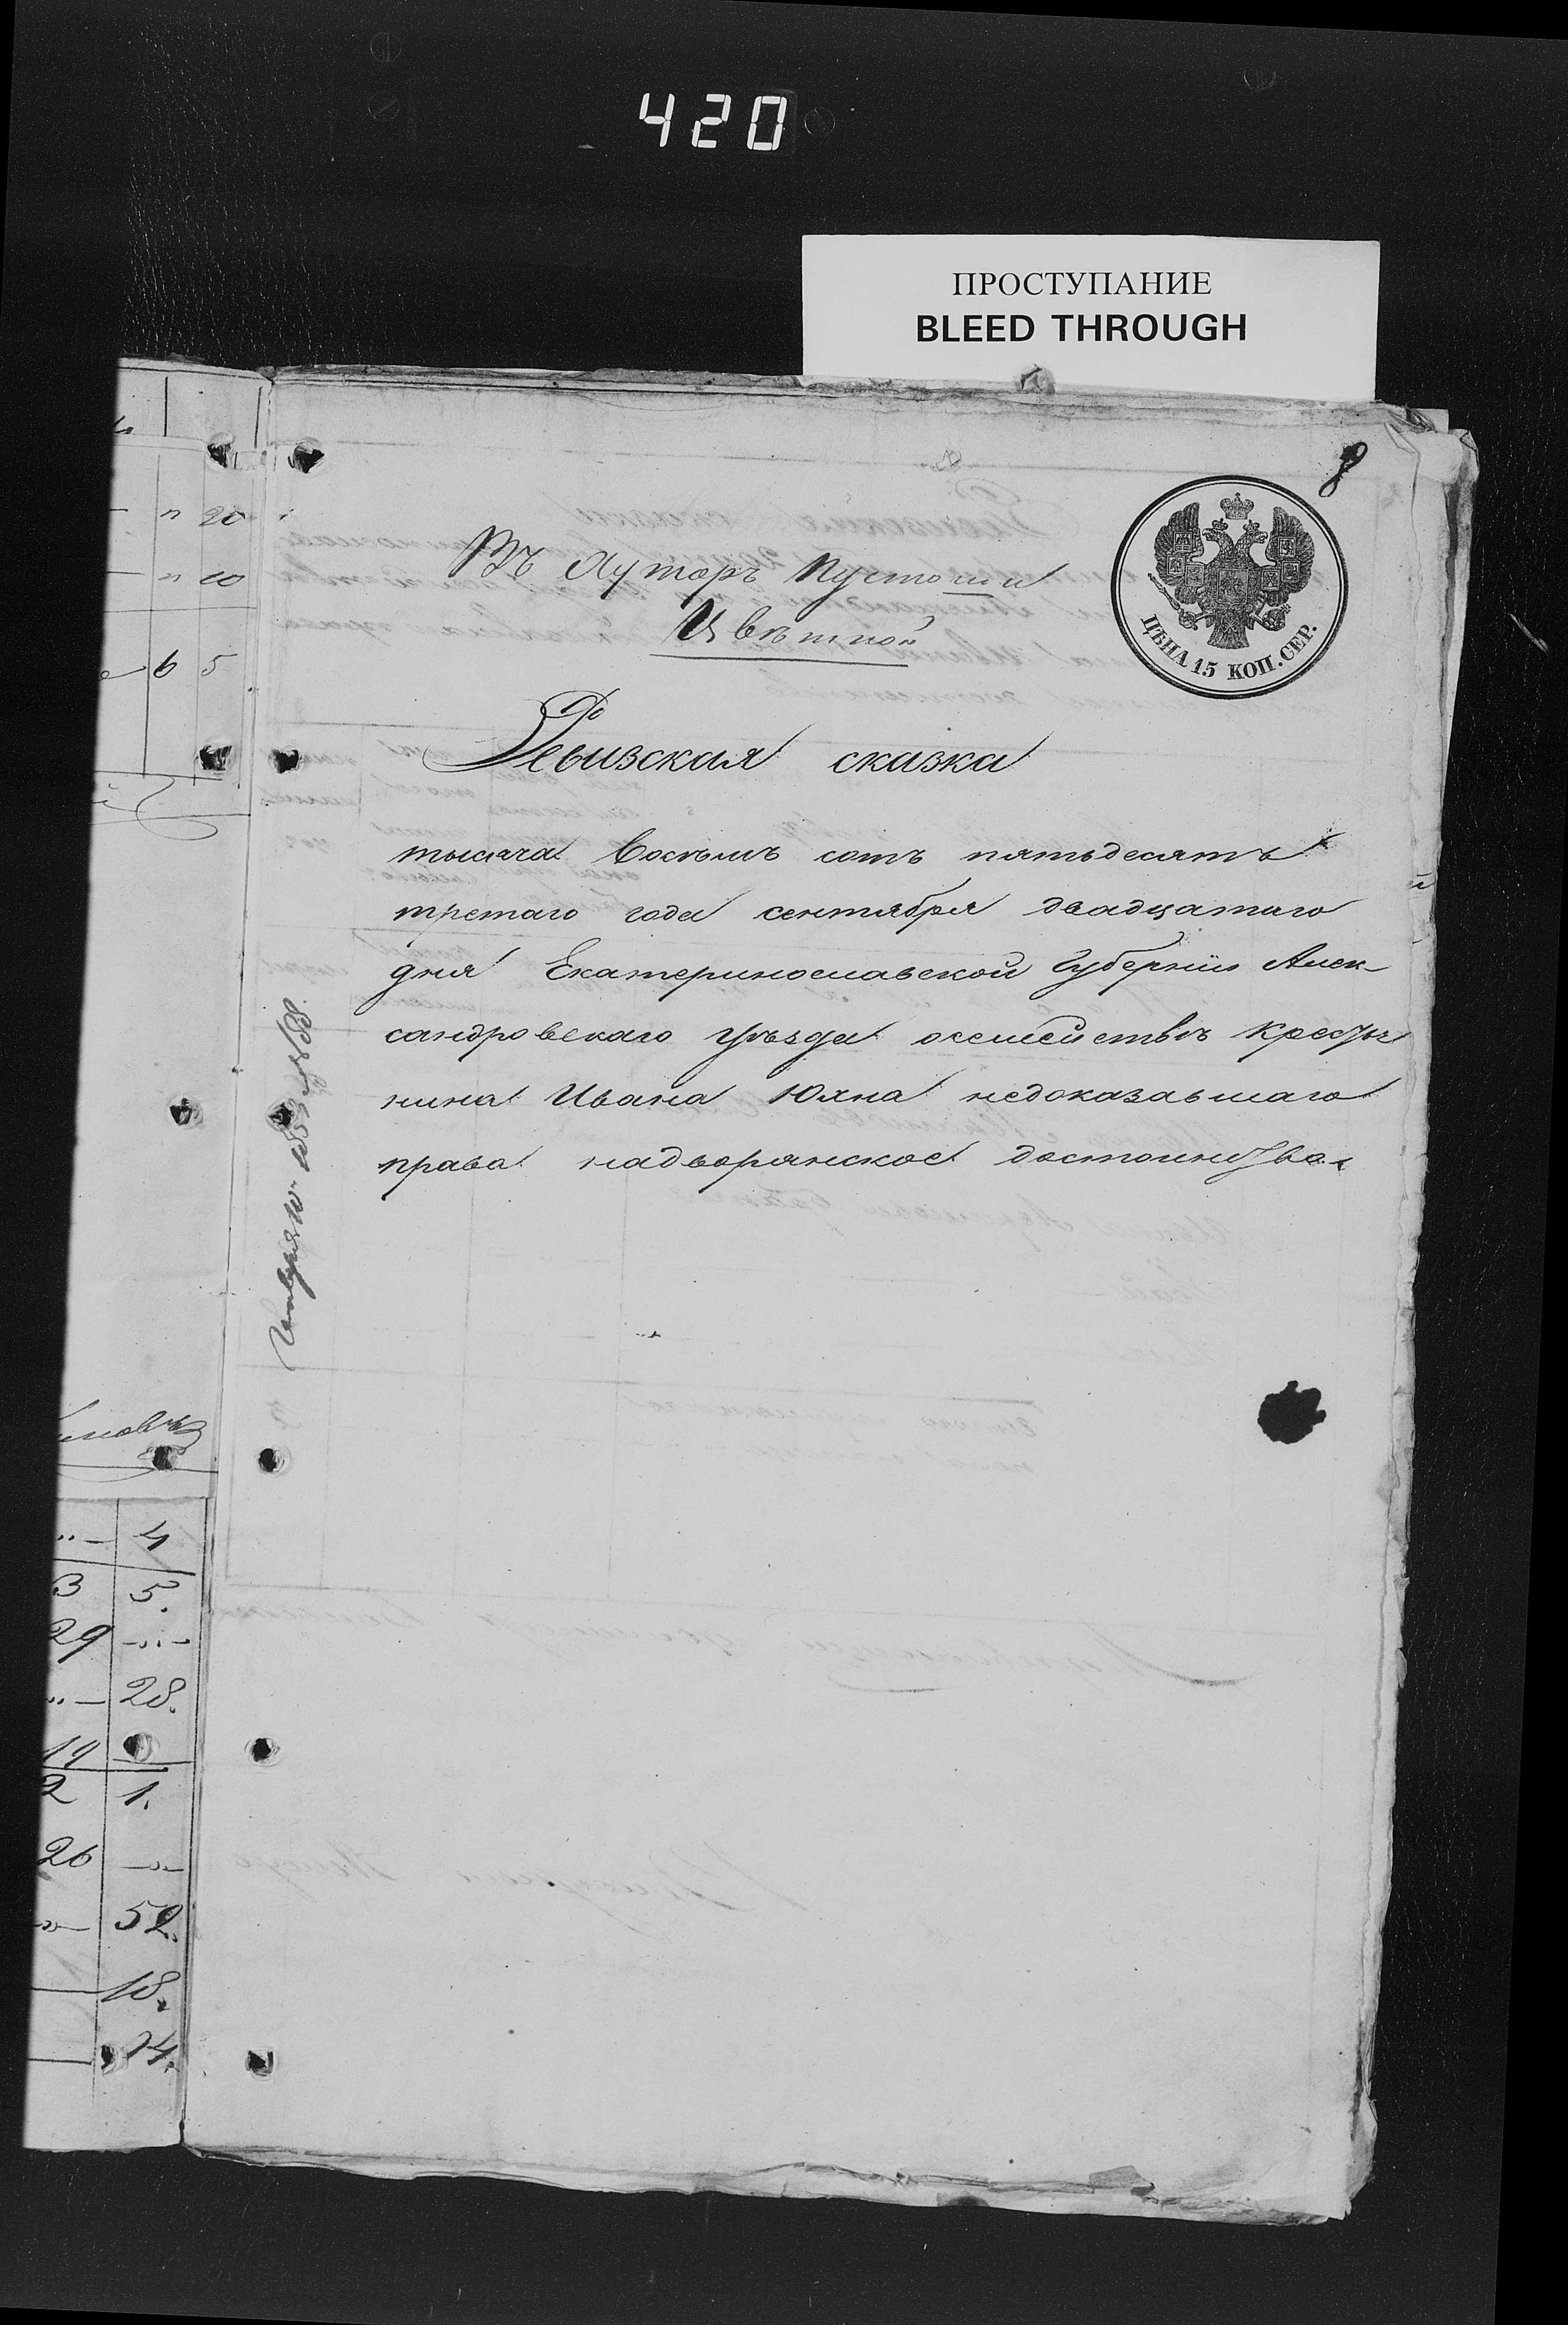 420
ПРОСТУПАНИЕ
BLEED THROUGH
8
Въ Хуторъ Пустоши
Цвѣтной
ЦѢНА 15 КОП. СЕР.
Ревизская сказка
тысяча восѣмъ сотъ пятьдесятъ
третаго года сентября двадцатаго
дня Екатеринославской Губерніи Алек-
сандровскаго Уѣзда осемействѣ Крестья
нина Ивана Юхна недоказавшаго
права надворянское достоинство.
20
10
6 5
4
3 5.
29
28.
2 1.
26
52.
18.
24.